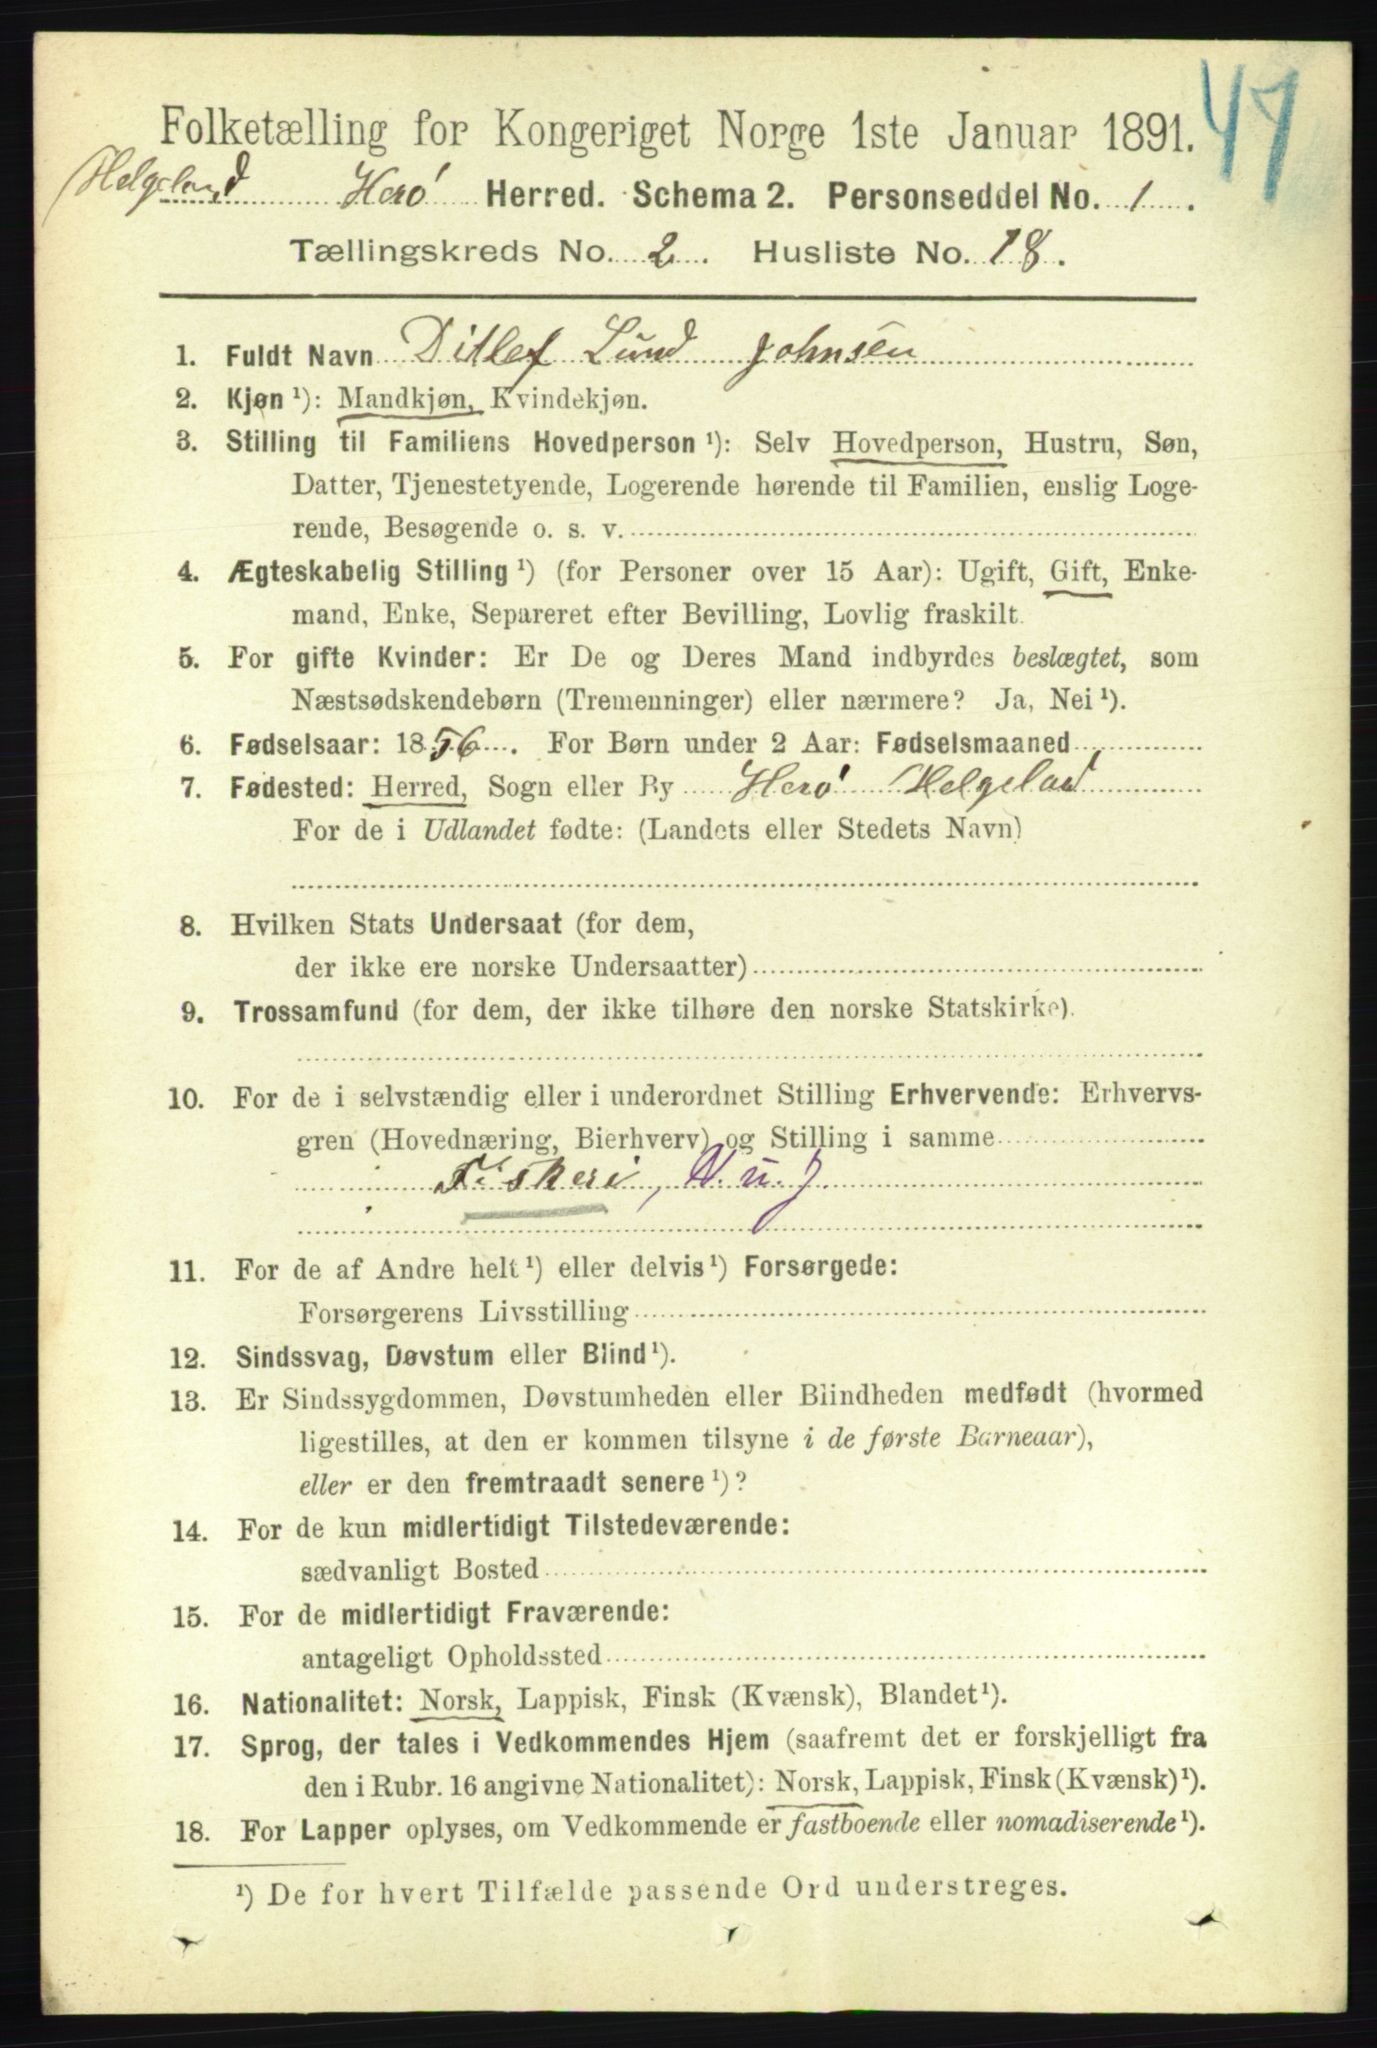 47
Folketælling for Kongeriget Norge 1ste Januar 1891.
Helgeland Herø Herred. Schema 2. Personseddel No. 1.
Tællingskreds No. 2. Husliste No. 18.
1. Fuldt Navn Ditlef Lund Johnsen
2. Kjøn ¹): Mandkjøn, Kvindekjøn.
3. Stilling til Familiens Hovedperson ¹): Selv Hovedperson, Hustru, Søn,
Datter, Tjenestetyende, Logerende hørende til Familien, enslig Loge-
rende, Besøgende o. s. v.
4. Ægteskabelig Stilling ¹) (for Personer over 15 Aar): Ugift, Gift, Enke-
mand, Enke, Separeret efter Bevilling, Lovlig fraskilt.
5. For gifte Kvinder: Er De og Deres Mand indbyrdes beslægtet, som
Næstsødskendebørn (Tremenninger) eller nærmere? Ja, Nei ¹).
6. Fødselsaar: 1856. For Børn under 2 Aar: Fødselsmaaned
7. Fødested: Herred, Sogn eller By Herø Helgeland
For de i Udlandet fødte: (Landets eller Stedets Navn)
8. Hvilken Stats Undersaat (for dem,
der ikke ere norske Undersaatter)
9. Trossamfund (for dem, der ikke tilhøre den norske Statskirke).
10. For de i selvstændig eller i underordnet Stilling Erhvervende: Erhvervs-
gren (Hovednæring, Bierhverv) og Stilling i samme
Fiskeri,
11. For de af Andre helt ¹) eller delvis ¹) Forsørgede:
Forsørgerens Livsstilling
12. Sindssvag, Døvstum eller Blind ¹).
13. Er Sindssygdommen, Døvstumheden eller Blindheden medfødt (hvormed
ligestilles, at den er kommen tilsyne i de første Barneaar),
eller er den fremtraadt senere ¹)?
14. For de kun midlertidigt Tilstedeværende:
sædvanligt Bosted
15. For de midlertidigt Fraværende:
antageligt Opholdssted
16. Nationalitet: Norsk, Lappisk, Finsk (Kvænsk), Blandet ¹).
17. Sprog, der tales i Vedkommendes Hjem (saafremt det er forskjelligt fra
den i Rubr. 16 angivne Nationalitet): Norsk, Lappisk, Finsk (Kvænsk) ¹).
18. For Lapper oplyses, om Vedkommende er fastboende eller nomadiserende ¹).
¹) De for hvert Tilfælde passende Ord understreges.